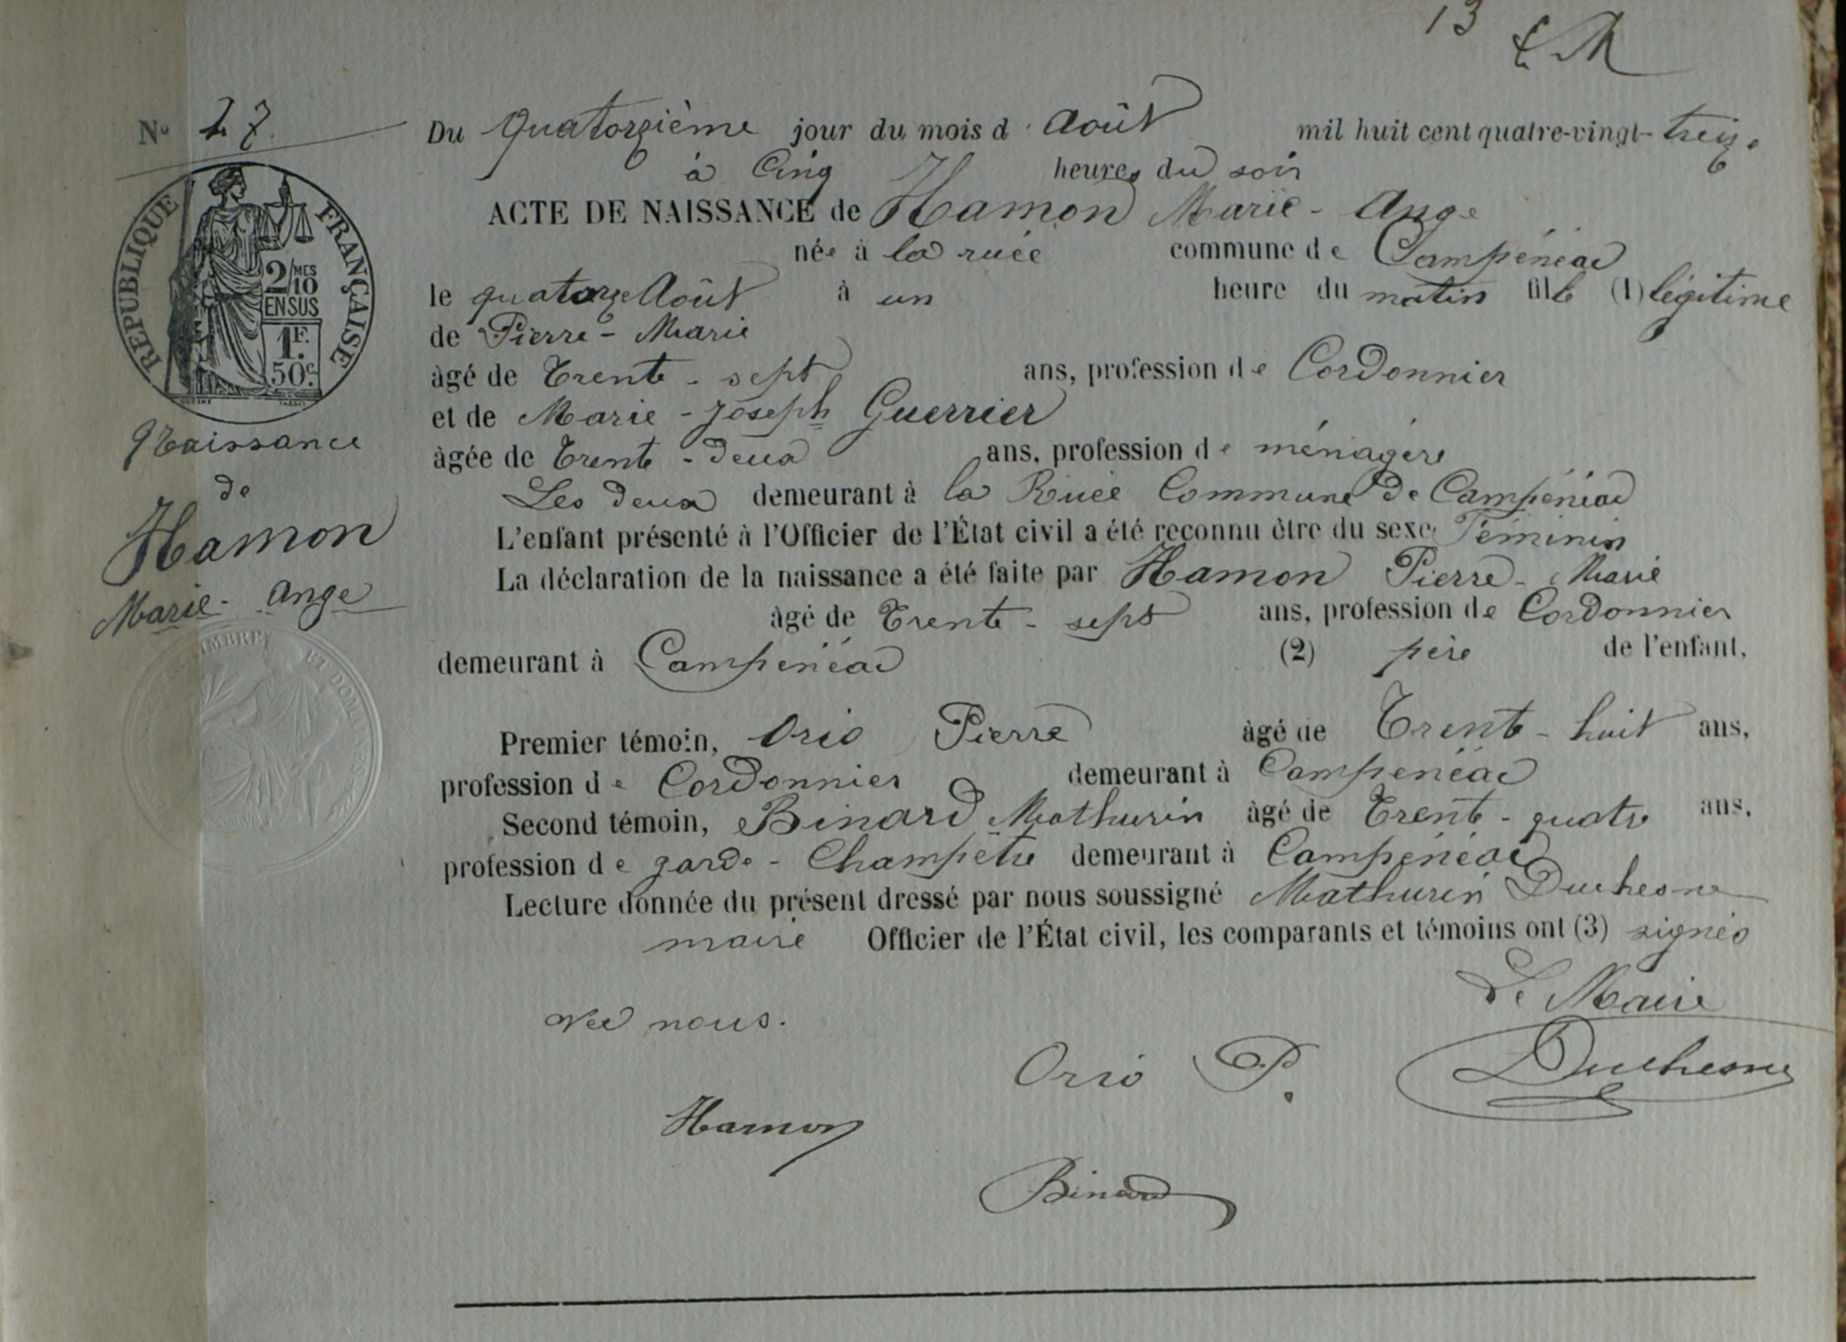 13
N° 27
Du quatorzième jour du mois d'Août mil huit cent quatre-vingt-treize
à Cinq heures du soir
ACTE DE NAISSANCE de Hamon Marie-Ange
née à la ruée commune de Campénéac
le quatorze Août à un heure du matin fille (1) légitime
de Pierre-Marie
âgé de Trente-sept ans, profession de Cordonnier
et de Marie-Joseph Guerrier
âgée de Trente-deux ans, profession de ménagère
Les deux demeurant à la Ruée Commune de Campénéac
L'enfant présenté à l'Officier de l'État civil a été reconnu être du sexe Féminin
La déclaration de la naissance a été faite par Hamon Pierre-Marie
âgé de Trente-sept ans, profession de Cordonnier
demeurant à Campénéac (2) père de l'enfant,
Premier témoin, Orio Pierre âgé de Trente-huit ans,
profession de Cordonnier demeurant à Campénéac
Second témoin, Binard Mathurin âgé de Trente-quatre ans,
profession de garde-Champêtre demeurant à Campénéac
Lecture donnée du présent dressé par nous soussigné Mathurin Duchesne
maire Officier de l'État civil, les comparants et témoins ont (3) signés
avec nous.
Le Maire
Orio P.
Duchesne
Hamon
Binard
RÉPUBLIQUE FRANÇAISE
2/MES
10
EN SUS
1F.
50c.
Naissance
de
Hamon
Marie-Ange